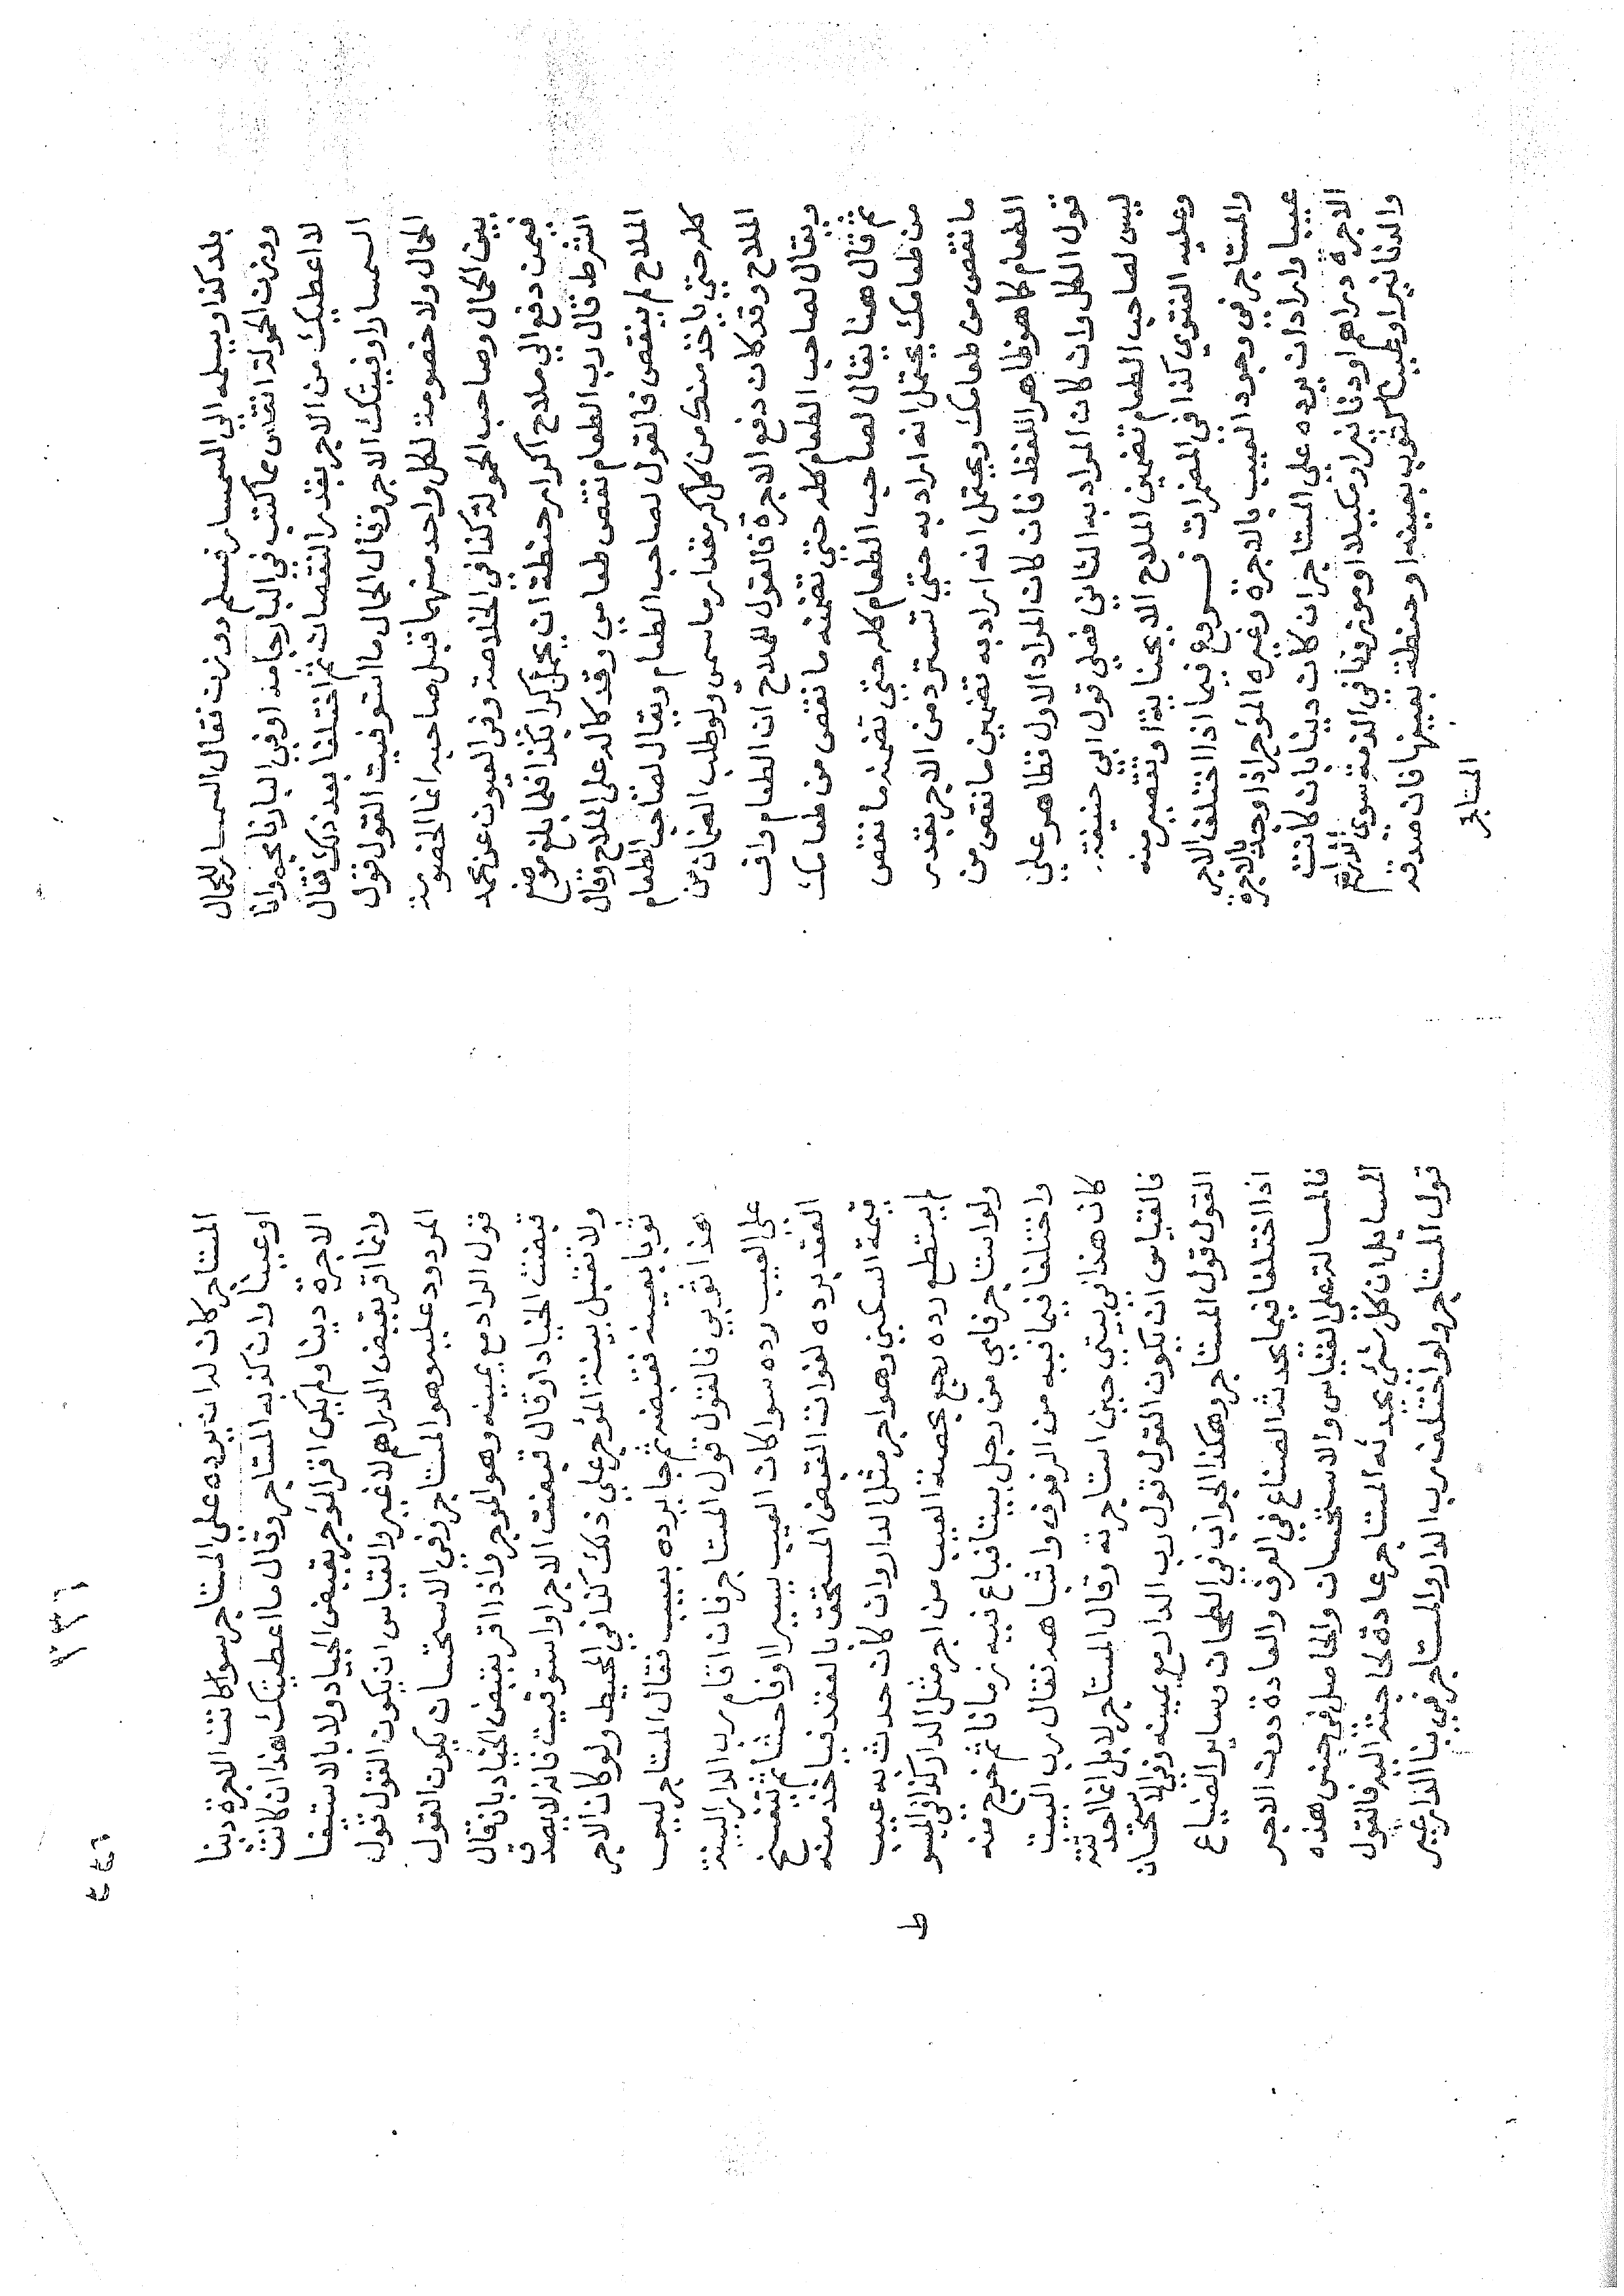 بلد كذا ويسلمه الي السمسار فسلم ووزنت فقال السمسار للحمال
وزنت الحمولة انقص مما كتب في البارجامه او في البارنامجه وانا
لا اعطيك من الاجر بقدر النقصان ثم اختلفا بعد ذلك فقال
السمسار اوفيتك الاجر وقال الحمال ما استوفيت القول قول
الحمال ولا خصومة لكل واحد منهما قبل صاحبه انما الخصومة
بين الحمال وصاحب الحمولة كذا في الخلاصة وفي العيون عن محمد
فيمن دفع الي ملاح اكرار حنطة ان يحمل كرا بكذا فلما بلغ موضع
الشرط قال رب الطعام نقص طعامي وقد كاله علي الملاح وقال
الملاح لم ينقص فالقول لصاحب الطعام ويقال لصاحب الطعام
كله حتي ياخذ منك من كل كر مقدار ما سمي ولو طلب الضمان من
الملاح وقد كان دفع الاجرة فالقول للملاح ان الطعام واف
ويقال لصاحب الطعام كله حتي تضمنه ما نقص من طعامك
ثم قال هنا يقال لصاحب الطعام كله حتي تضمنه ما نقص
من طعامك يحتمل انه اراد به حتي تسترد من الاجر بقدر
ما نقص من طعامك ويحتمل انه اراد به تضمين ما نقص من
الطعام كما هو ظاهر اللفظ فان كان المراد الاول فظاهر علي
قول الكل وان كان المراد به الثاني فعلي قول ابي حنيفة
ليس لصاحب الطعام تضمين الملاح الا بجناية او تقصير منه
وعليه الفتوي كذا في المضمرات فروع فيما اذا اختلف الاجر
والمستاجر في وجود العيب بالاجرة وغيره المؤجر اذا وجد بالاجرة
عيبا واراد ان يرده علي المستاجر ان كان دينا بان كانت
الاجرة دراهم او دنانير او مكيلا او موزونا في الذمة سوي الدراهم
والدنانير او عينا كثوب بعينه او حنطة بعينها فان صدقه
المستاجر
٩٣٦
٤٤٦
المستاجر كان له ان يرده علي المستاجر سوا كانت الاجرة دينا
او عينا وان كذبه المستاجر وقال ما اعطيتك هذا ان كانت
الاجرة دينا ولم يكن اقر المؤجر بقبض الجياد ولا بالاستيفا
وانما اقر بقبض الدراهم لا غير والقياس ان يكون القول قول
المردود عليه وهو المستاجر وفي الاستحسان يكون القول
قول الراد مع يمينه وهو الموجر واذا اقر بقبض الجياد بان قال
قبضت الجياد او قال قبضت الاجر او استوفيت فانه لا يصدق
ولا تقبل بينة المؤجر علي ذلك كذا في المحيط ولو كان الاجر
ثوبا بعينه فقبضه ثم جا يرده بعيب فقال المستاجر ليس
هذا ثوبي فالقول قول المستاجر فان اقام رب الدار البينة
علي العيب رده سوا كان العيب يسيرا او فاحشا ثم تنفسخ
العقد برده لفوات القبض المستحق بالعقد فياخذ منه
قيمة السكني وهو اجر مثل الدار وان كان حدث به عيب
لم يستطع رده رجع بحصة العيب من اجر مثل الدار كذا في المبسوط
ولو استاجر فامي من رجل بيتا فباع فيه زمانا ثم خرج منه
واختلفا فيما فيه من الرفوف واشباهه فقال رب البيت
كان هذا في بيتي حين استاجرته وقال المستاجر لا بل انا احدثته
فالقياس ان يكون القول قول رب الدار مع يمينه وفي الاستحسان
القول قول المستاجر وهكذا الجواب في الطحان وساير الصناع
اذا اختلفا فيما يحدثه الصناع في العرف والعادة دون الاجر
فالمسالة علي القياس والاستحسان والحاصل في جنس هذه
المسايل ان كل شئ يحدثه المستاجر عادة لحاجته اليه فالقول
قول المستاجر ولو اختلف رب الدار والمستاجر في بنا الدار غير